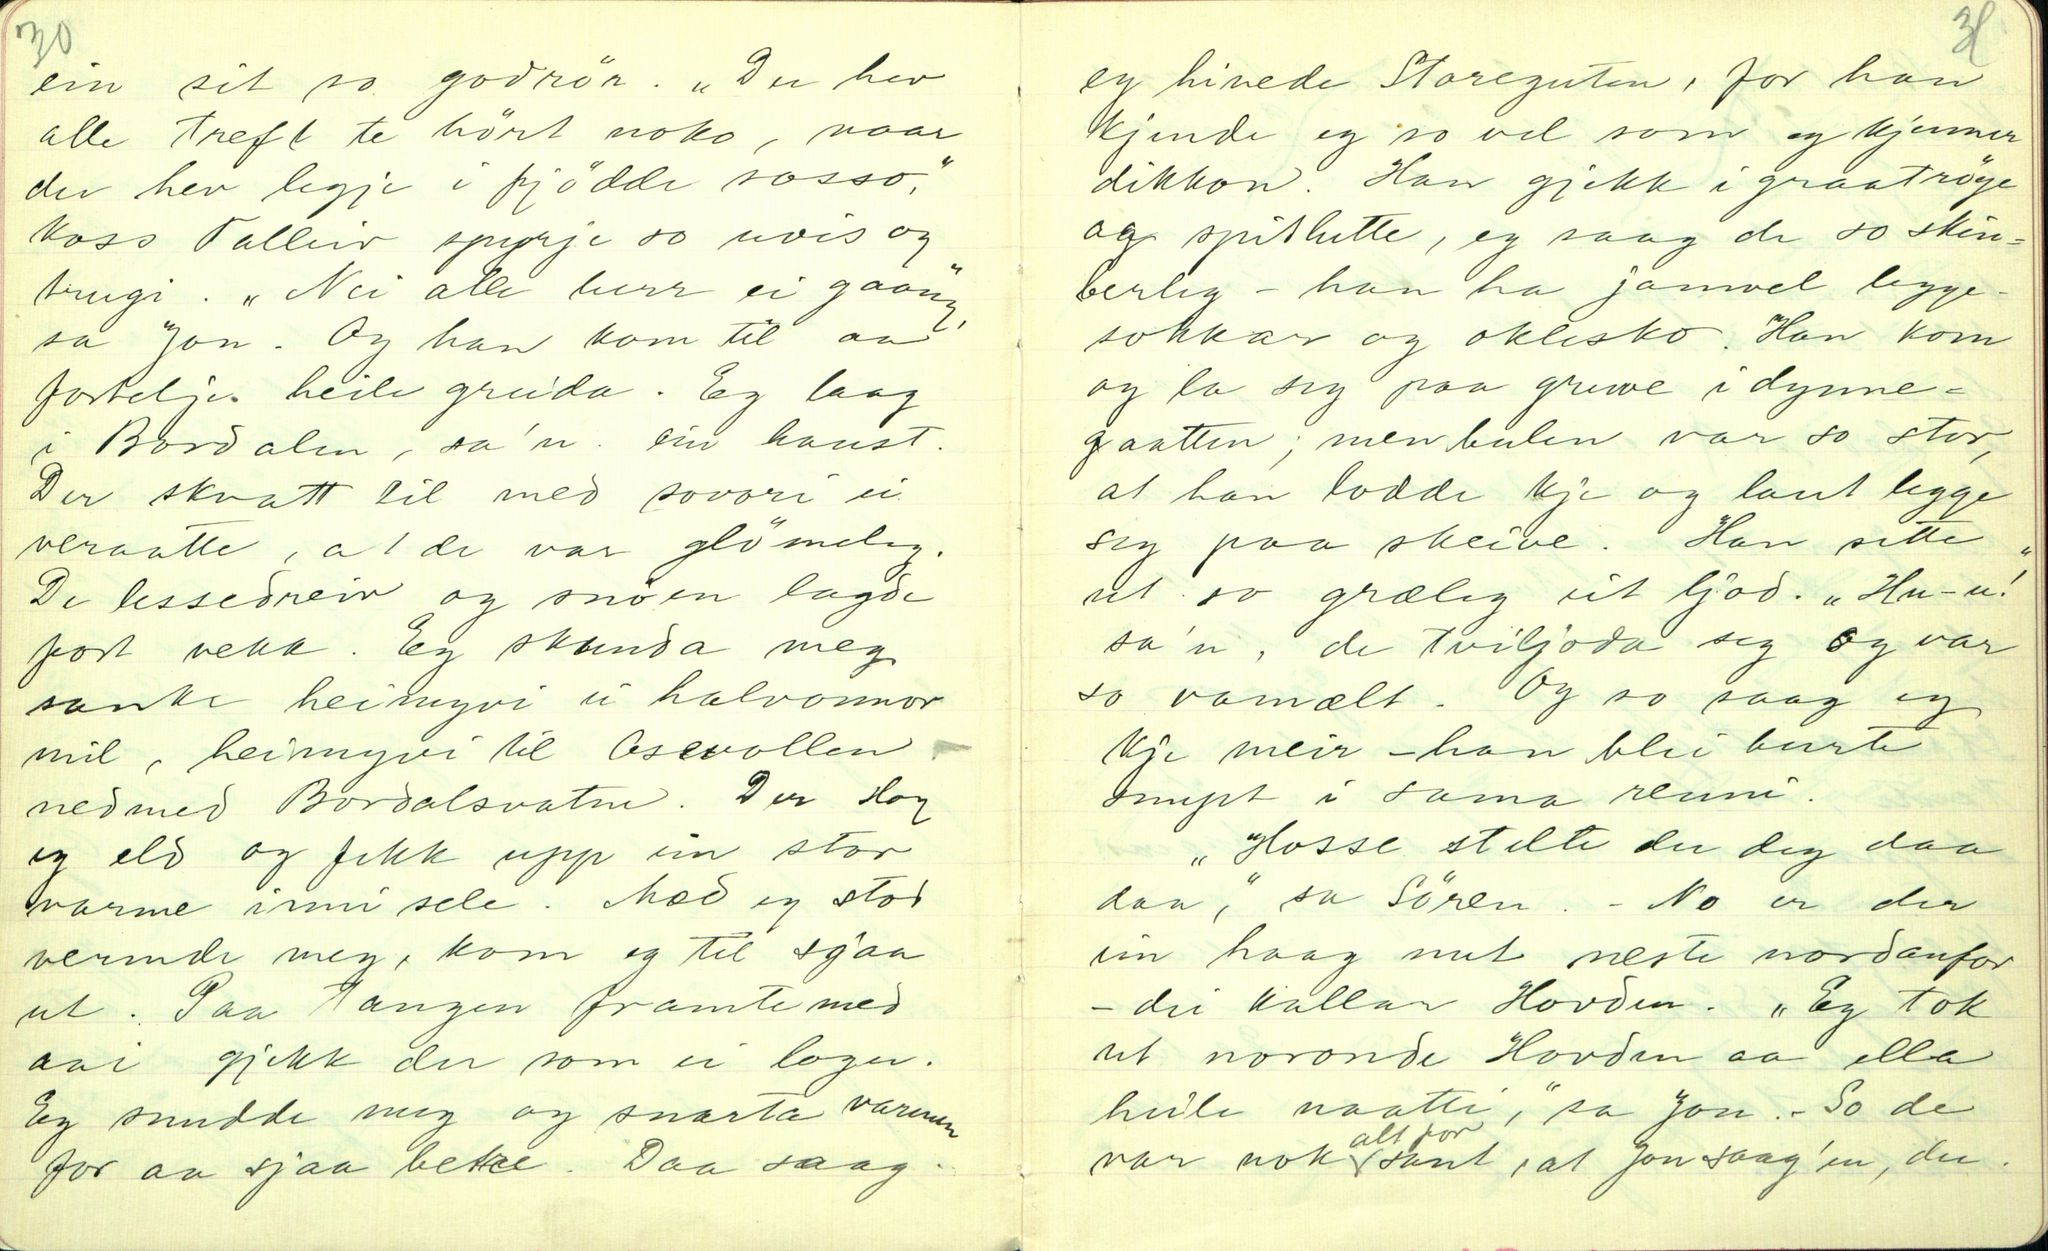 30
ein sit so godrör. „Du hev
alle treft te hört noko, naar
du hev legje i fjödde sosso,"
koss Talleiv spyrje so uvis og
trugi. „Nei alle burr ei gaang",
sa Jon. Og han kom til aa
fortelje heile greida. Eg laag
i Bordalen, sa'n. ein haust.
Der skvatt til med sovori ei
veraatte, at de var glömeleg.
De lessedreiv og snöen lagde
fort vekk. Eg skunda meg
sanke heimyvi ei halvonnor
mil, heimyvi til Osevollen
nedmed Bordalsvatne. Der slog
eg eld og fekk upp ein stor
varme inni sele. Med eg stod
vermde meg, kom eg til sjaa
ut. Paa Tangen framte med
aai gjekk der som ei loge.
Eg snudde meg og snarta varmen
for aa sjaa betre. Daa saag
31
eg hivede Storeguten, for han
kjende eg so vel som eg kjenner
dikkon. Han gjekk i graatröge
og spishette, eg saag de so skin=
berleg - han ha jamvel legge-
sokkar og oklesko. Han kom
og la seg paa gruve i dynne=
gaatten; men bulen var so stor,
at han lodde kje og laut legge
seg paa skeive. Han sette
ut so græleg eit ljod. „Hu-u!"
sa'n, de tviljoda seg og var
so vamælt. Og so saag eg
kje meir - han blei burte
snypt i sama renni.
„Hosse stelte du deg daa
daa," sa Sören. - No er der
ein haag nut neste nordanfor
- dei kallar Hovden. „Eg tok
ut noronde Hovden aa ella
heile naatti," sa Jon. - So de
var nok alt for sant, at Jon saag'en, du